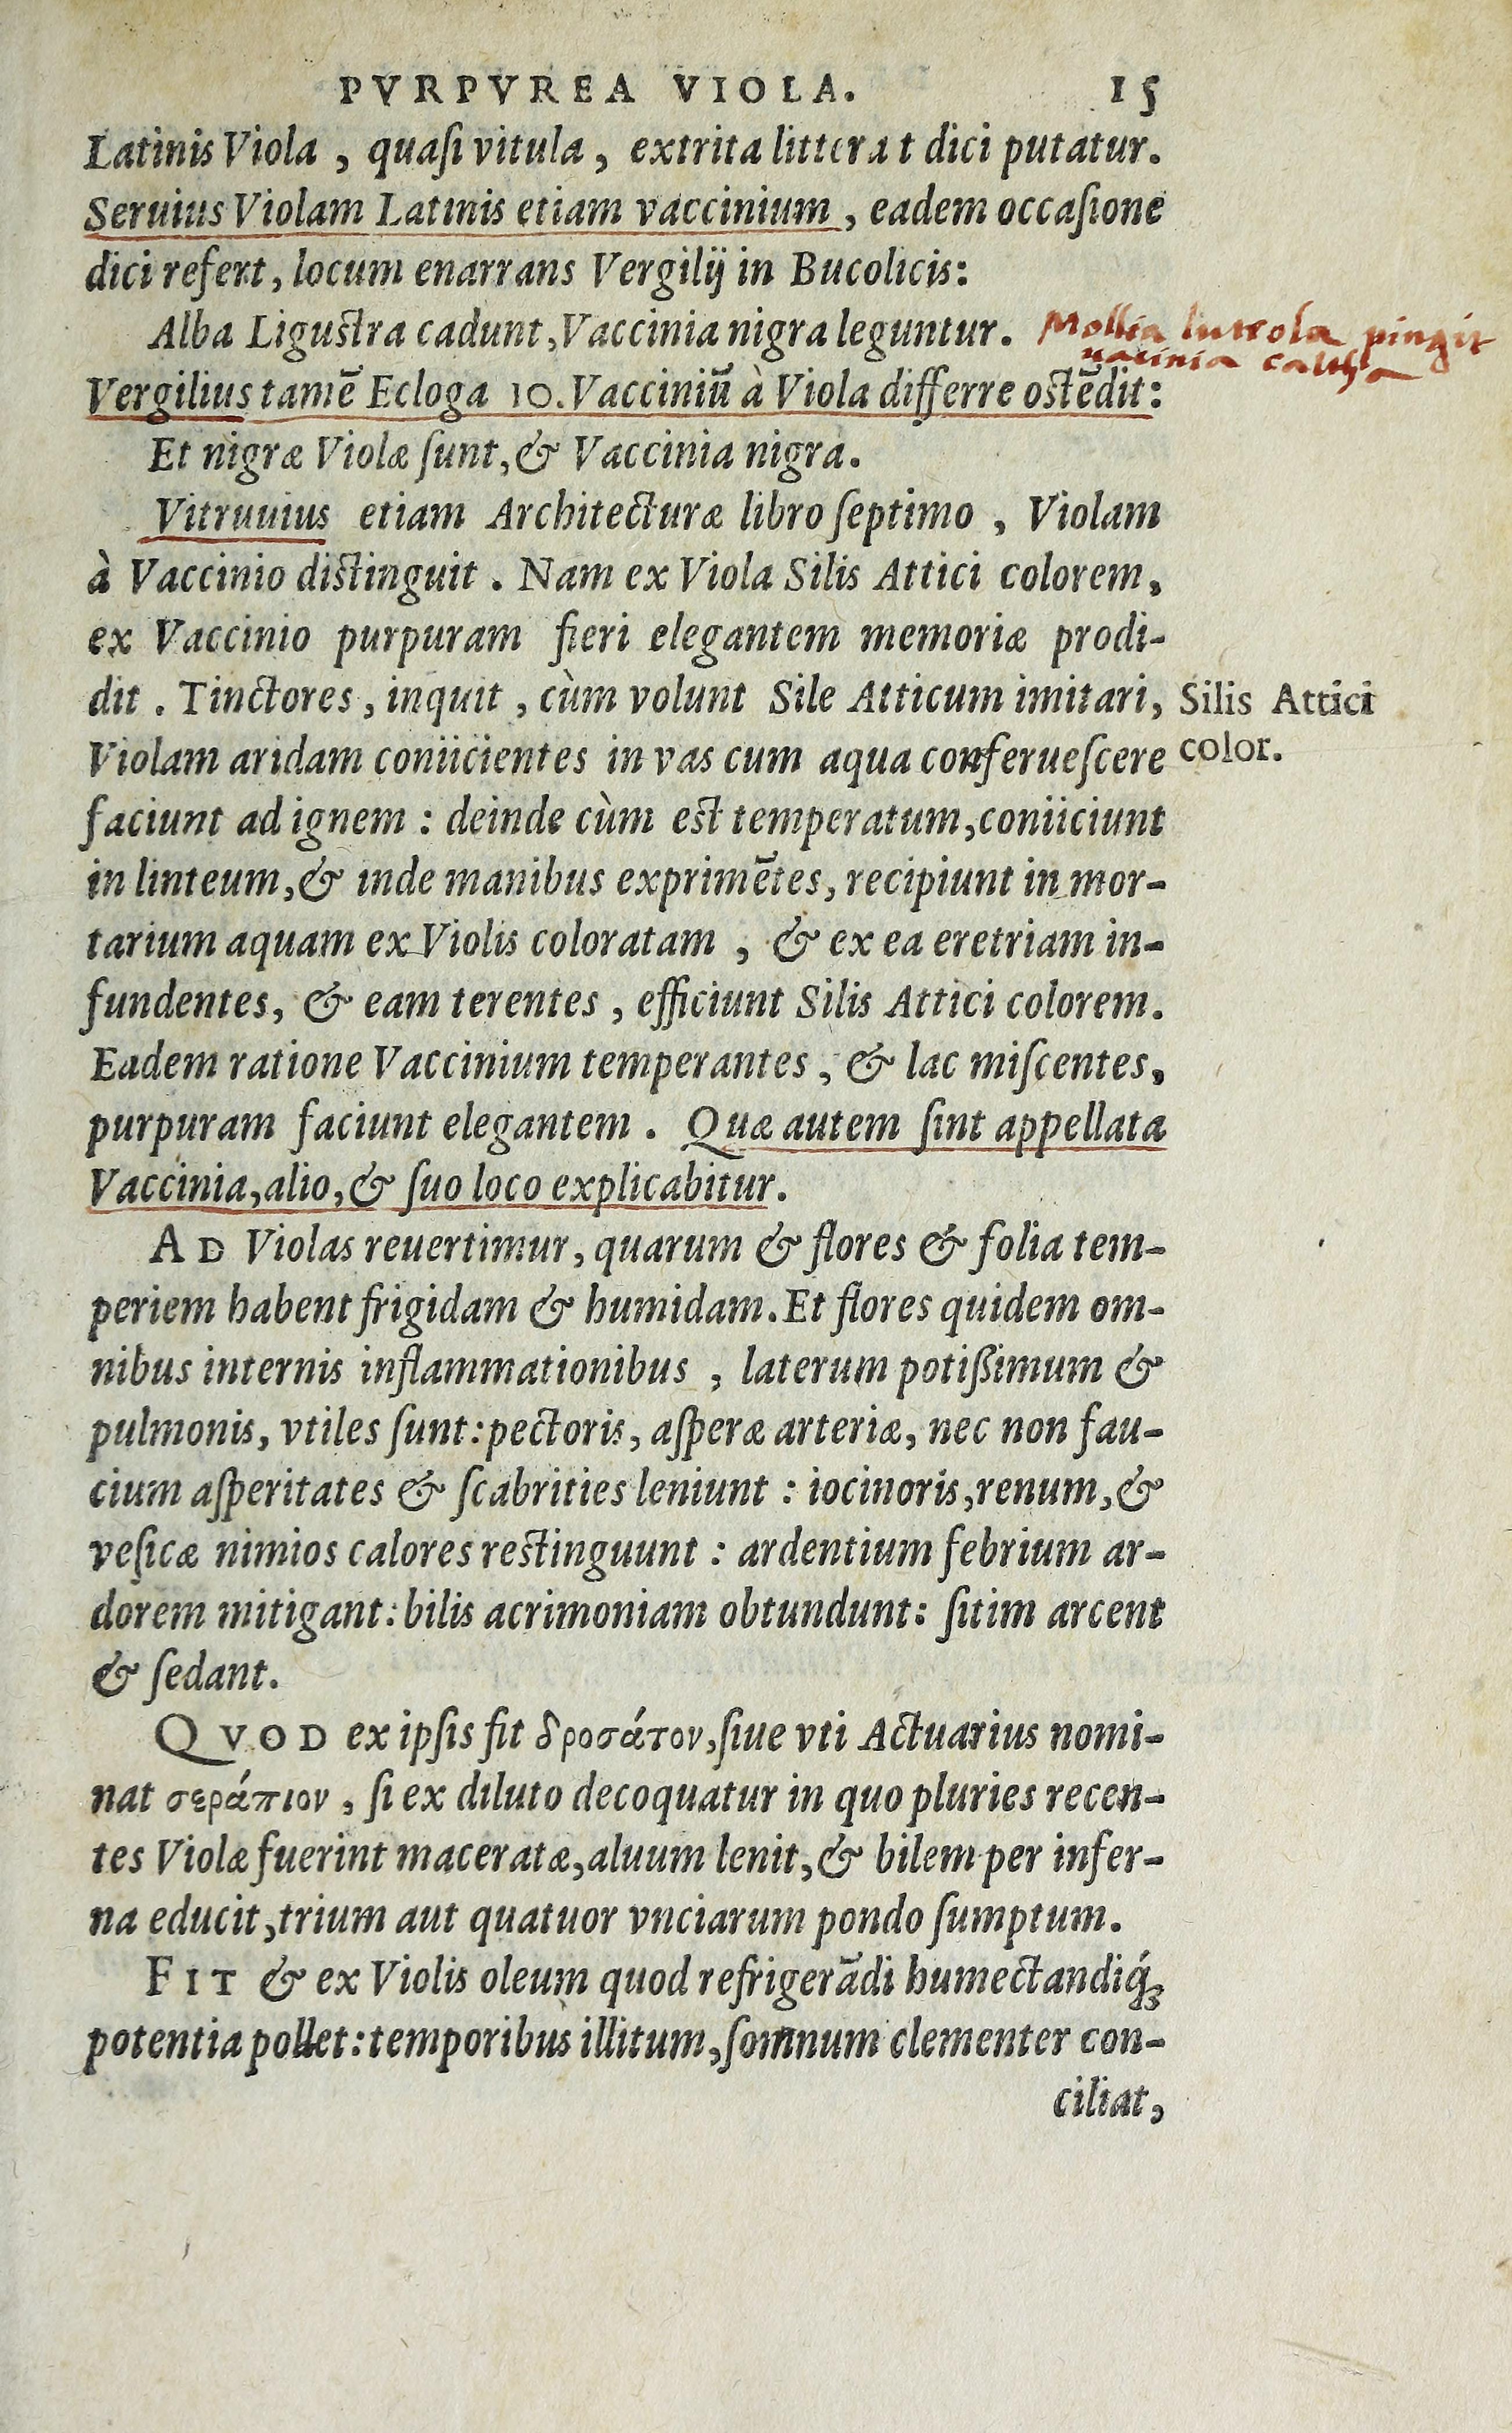 PVRPVREA VIOLA. 15
Latinis Viola, quaſi vitula, extrita littera t dici putatur.
Seruius Violam Latinis etiam vaccinium, eadem occaſione
dici refert, locum enarrans Vergilij in Bucolicis:
Alba Liguſtra cadunt, Vaccinia nigra leguntur.
Mollia luteola pingit
uacinia caltha
Vergilius tamē Ecloga 10. Vacciniū à Viola differre oſtēdit:
Et nigræ Violæ ſunt, & Vaccinia nigra.
Vitruuius etiam Architecturæ libro ſeptimo, Violam
à Vaccinio diſtinguit. Nam ex Viola Silis Attici colorem,
ex Vaccinio purpuram fieri elegantem memoriæ prodi-
dit. Tinctores, inquit, cùm volunt Sile Atticum imitari,
Silis Attici
color.
Violam aridam coniicientes in vas cum aqua conferueſcere
faciunt ad ignem: deinde cùm eſt temperatum, coniiciunt
in linteum, & inde manibus exprimētes, recipiunt in mor-
tarium aquam ex Violis coloratam, & ex ea eretriam in-
fundentes, & eam terentes, efficiunt Silis Attici colorem.
Eadem ratione Vaccinium temperantes, & lac miſcentes,
purpuram faciunt elegantem. Quæ autem ſint appellata
Vaccinia, alio, & ſuo loco explicabitur.
AD Violas reuertimur, quarum & flores & folia tem-
periem habent frigidam & humidam. Et flores quidem om-
nibus internis inflammationibus, laterum potiſſimum &
pulmonis, vtiles ſunt: pectoris, aſperæ arteriæ, nec non fau-
cium aſperitates & ſcabrities leniunt: iocinoris, renum, &
veſicæ nimios calores reſtinguunt: ardentium febrium ar-
dorem mitigant: bilis acrimoniam obtundunt: ſitim arcent
& ſedant.
QVOD ex ipſis fit δροσάτον, ſiue vti Actuarius nomi-
nat σεράπιον, ſi ex diluto decoquatur in quo pluries recen-
tes Violæ fuerint maceratæ, aluum lenit, & bilem per infer-
na educit, trium aut quatuor vnciarum pondo ſumptum.
FIT & ex Violis oleum quod refrigerādi humectandiq́ꝫ
potentia pollet: temporibus illitum, ſomnum clementer con-
ciliat,